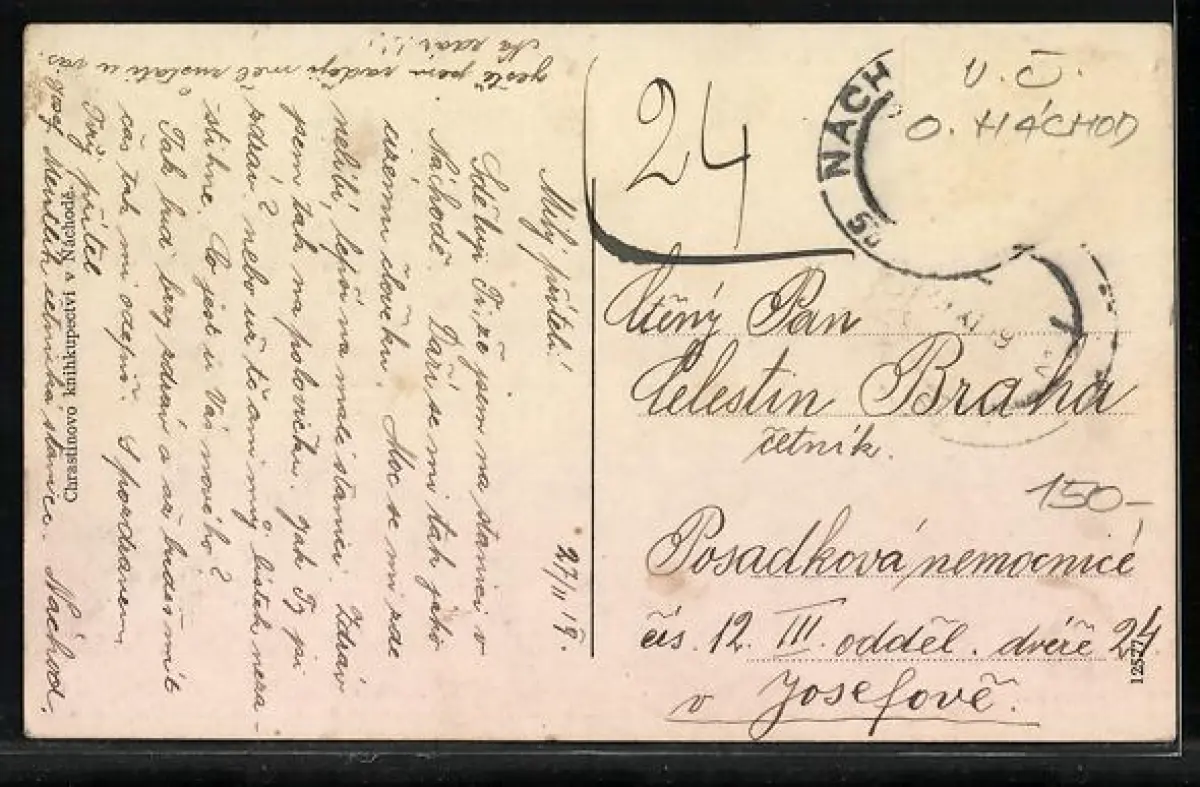 Milý příteli! 27/II 19.
Sděluji Ti, že jsem na stanici v
Náchodě. Daří se mi tak jako
uzemu člověku. Moc se mi zde
nelíbí, lepší na malé stanici. Zdráv
jsem tak na polovičku. Jak Ty jsi
zdráv? nebo už tě ani můj lístek neza-
stihne. Co jest u Vás nového?
Tak buď brzy zdráv a až budeš mít
čas tak mi odepiš. S pozdravem
Tvůj přítel
Josef četnická stanice. Náchod.
ještě jsem raději měl zůstati u vás.
Na zdar!!!
Chrastinovo knihkupectví v Náchodě.
24
NÁCH
V. Č.
O. NÁCHOD
Ctěný Pan
Celestin Braha
četník.
150-
Posadková nemocnice
čís. 12. III. odděl. dvéře 24
v Josefově.
12577